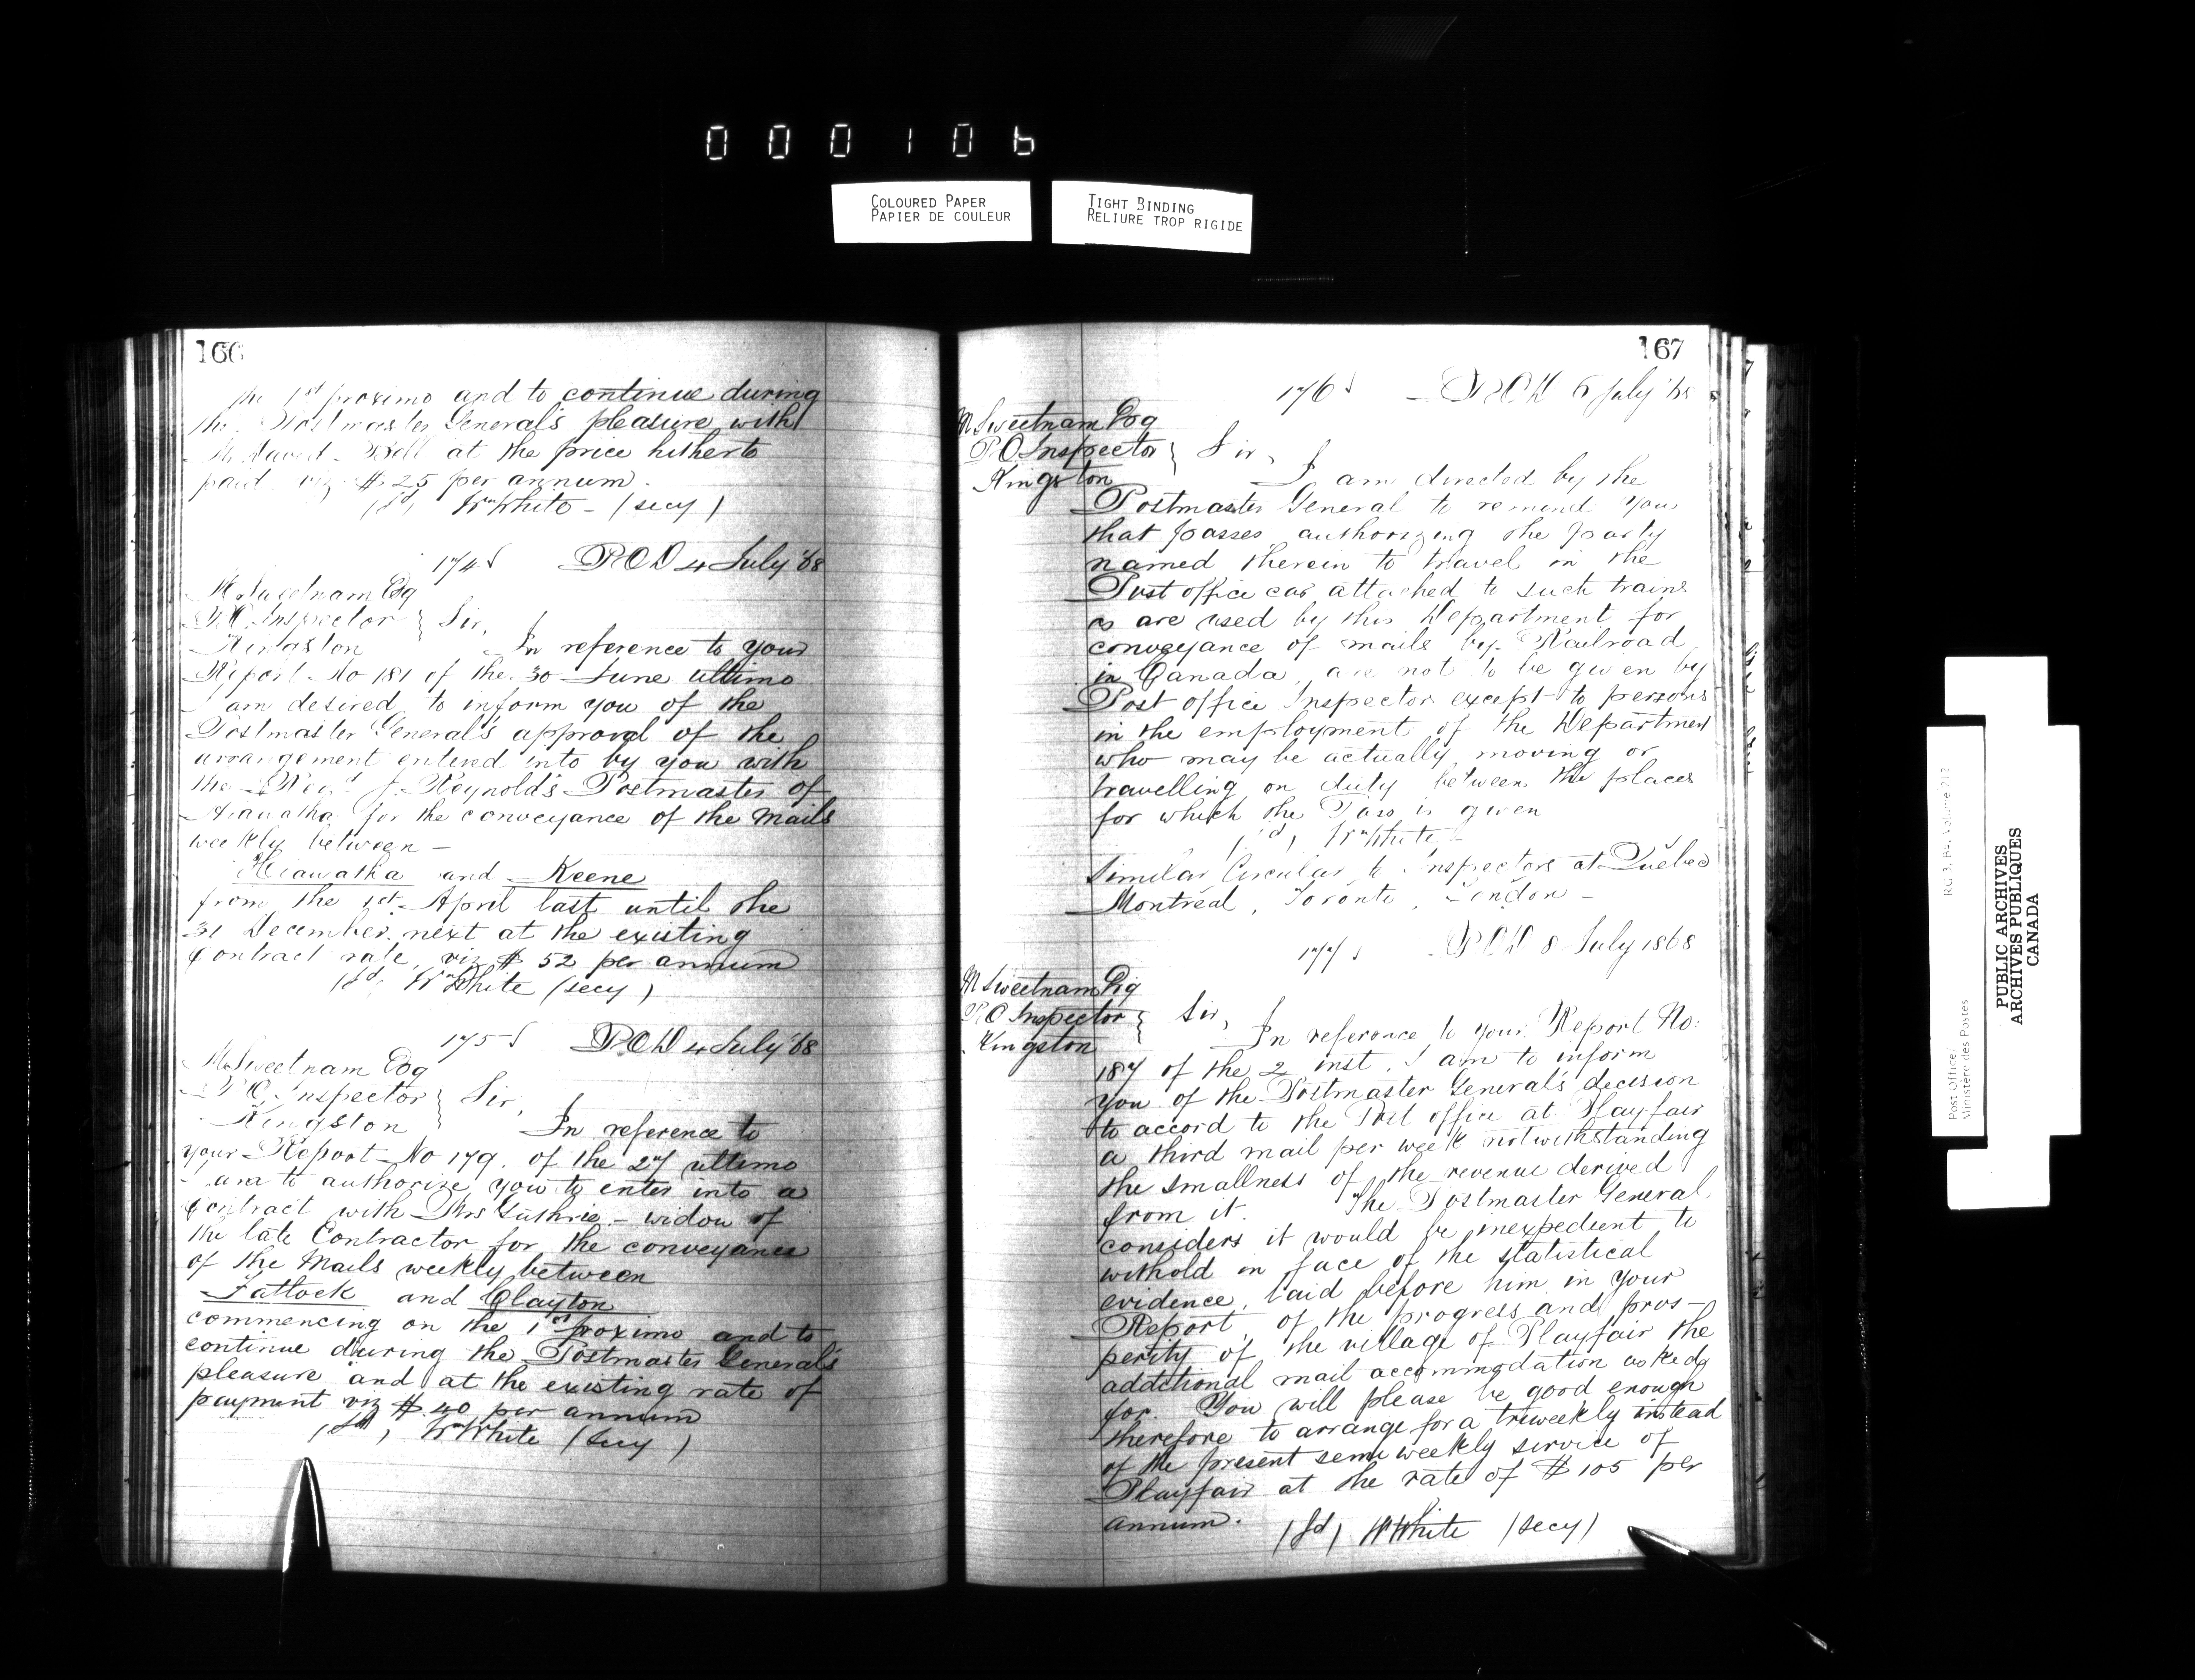 000106
COLOURED PAPER
PAPIER DE COULEUR
TIGHT BINDING
RELIURE TROP RIGIDE
166
the 1st proximo and to continue during
the Postmaster General's pleasure with
Mr David at the price hitherto
paid viz $25 per annum.
(sd) Wm White - (secy)
174 S POD 4 July '68
M Sweetnam Esq
P.O. Inspector } Sir,
Kingston In reference to your
Report No 181 of the 30 June ultimo
I am desired to inform you of the
Postmaster General's approval of the
arrangement entered into by you with
the Revd J. Reynolds Postmaster of
Hiawatha for the conveyance of the Mails
weekly between -
Hiawatha and Keene
from the 1st April last until the
31 December next at the existing
Contract rate, viz $52 per annum
(sd) Wm White (secy)
175 S POD 4 July '68
M Sweetnam Esq
P.O. Inspector } Sir,
Kingston In reference to
your Report No 179 of the 27 ultimo
I am to authorize you to enter into a
Contract with Mrs Guthrie - widow of
the late Contractor for the conveyance
of the Mails weekly between
Tatlock and Clayton
commencing on the 1st proximo and to
continue during the Postmaster General's
pleasure and at the existing rate of
payment viz $40 per annum
(sd) Wm White (secy)
167
176 S POD 6 July '68
M Sweetnam Esq
P.O. Inspector } Sir,
Kingston I am directed by the
Postmaster General to remind you
that passes authorizing the party
named therein to travel in the
Post office car attached to such trains
as are used by this Department for
conveyance of mails by Railroad
in Canada, are not to be given by
Post office Inspector except to persons
in the employment of the Department
who may be actually moving or
travelling on duty between the places
for which the Pass is given
(sd) Wm White -
Similar Circular to Inspectors at Quebec
Montreal, Toronto, London -
177 S POD 8 July 1868
M Sweetnam Esq
P.O. Inspector } Sir,
Kingston In reference to your Report No:
187 of the 2 inst. I am to inform
you of the Postmaster General's decision
to accord to the Post office at Playfair
a third mail per week notwithstanding
the smallness of the revenue derived
from it. The Postmaster General
considers it would be inexpedient to
withold in face of the statistical
evidence, laid before him in your
Report, of the progress and pros-
perity of the village of Playfair the
additional mail accommodation asked
for. You will please be good enough
therefore to arrange for a triweekly instead
of the present semi weekly service of
Playfair at the rate of $105 per
annum.
(sd) W White (secy)
Post Office/
Ministère des Postes
RG 3, B4, Volume 212
PUBLIC ARCHIVES
ARCHIVES PUBLIQUES
CANADA